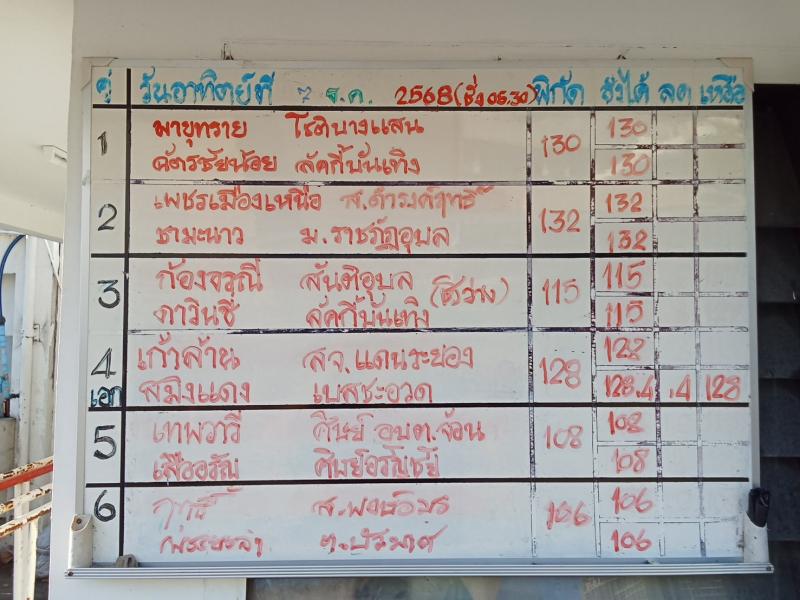 คู่ วันอาทิตย์ที่ 7 ธ.ค. 2568 (ชั่ง 05.30) พิกัด ชั่งได้ ลด เหลือ
1 พายุทราย โชติบางแสน 130 130
ฉัตรชัยน้อย ลัคกี้บันเทิง 130
2 เพชรเมืองเหนือ ส.ดำรงค์ฤทธิ์ 132 132
ชามะนาว ม.ราชภัฏอุบล 132
3 ก้องจรุณี สันติอุบล (ชิงว่าง) 115 115
ภาวินชู ลัคกี้บันเทิง 115
4 เก้าล้าน สจ.แดนระยอง 128 128
เอก สมิงแดง เบสชะอวด 128.4 .4 128
5 เทพวารี ศิษย์ อบต.จ้อน 108 108
เสืออรัญ 108
6 ฤทธิ์ 106 106
106